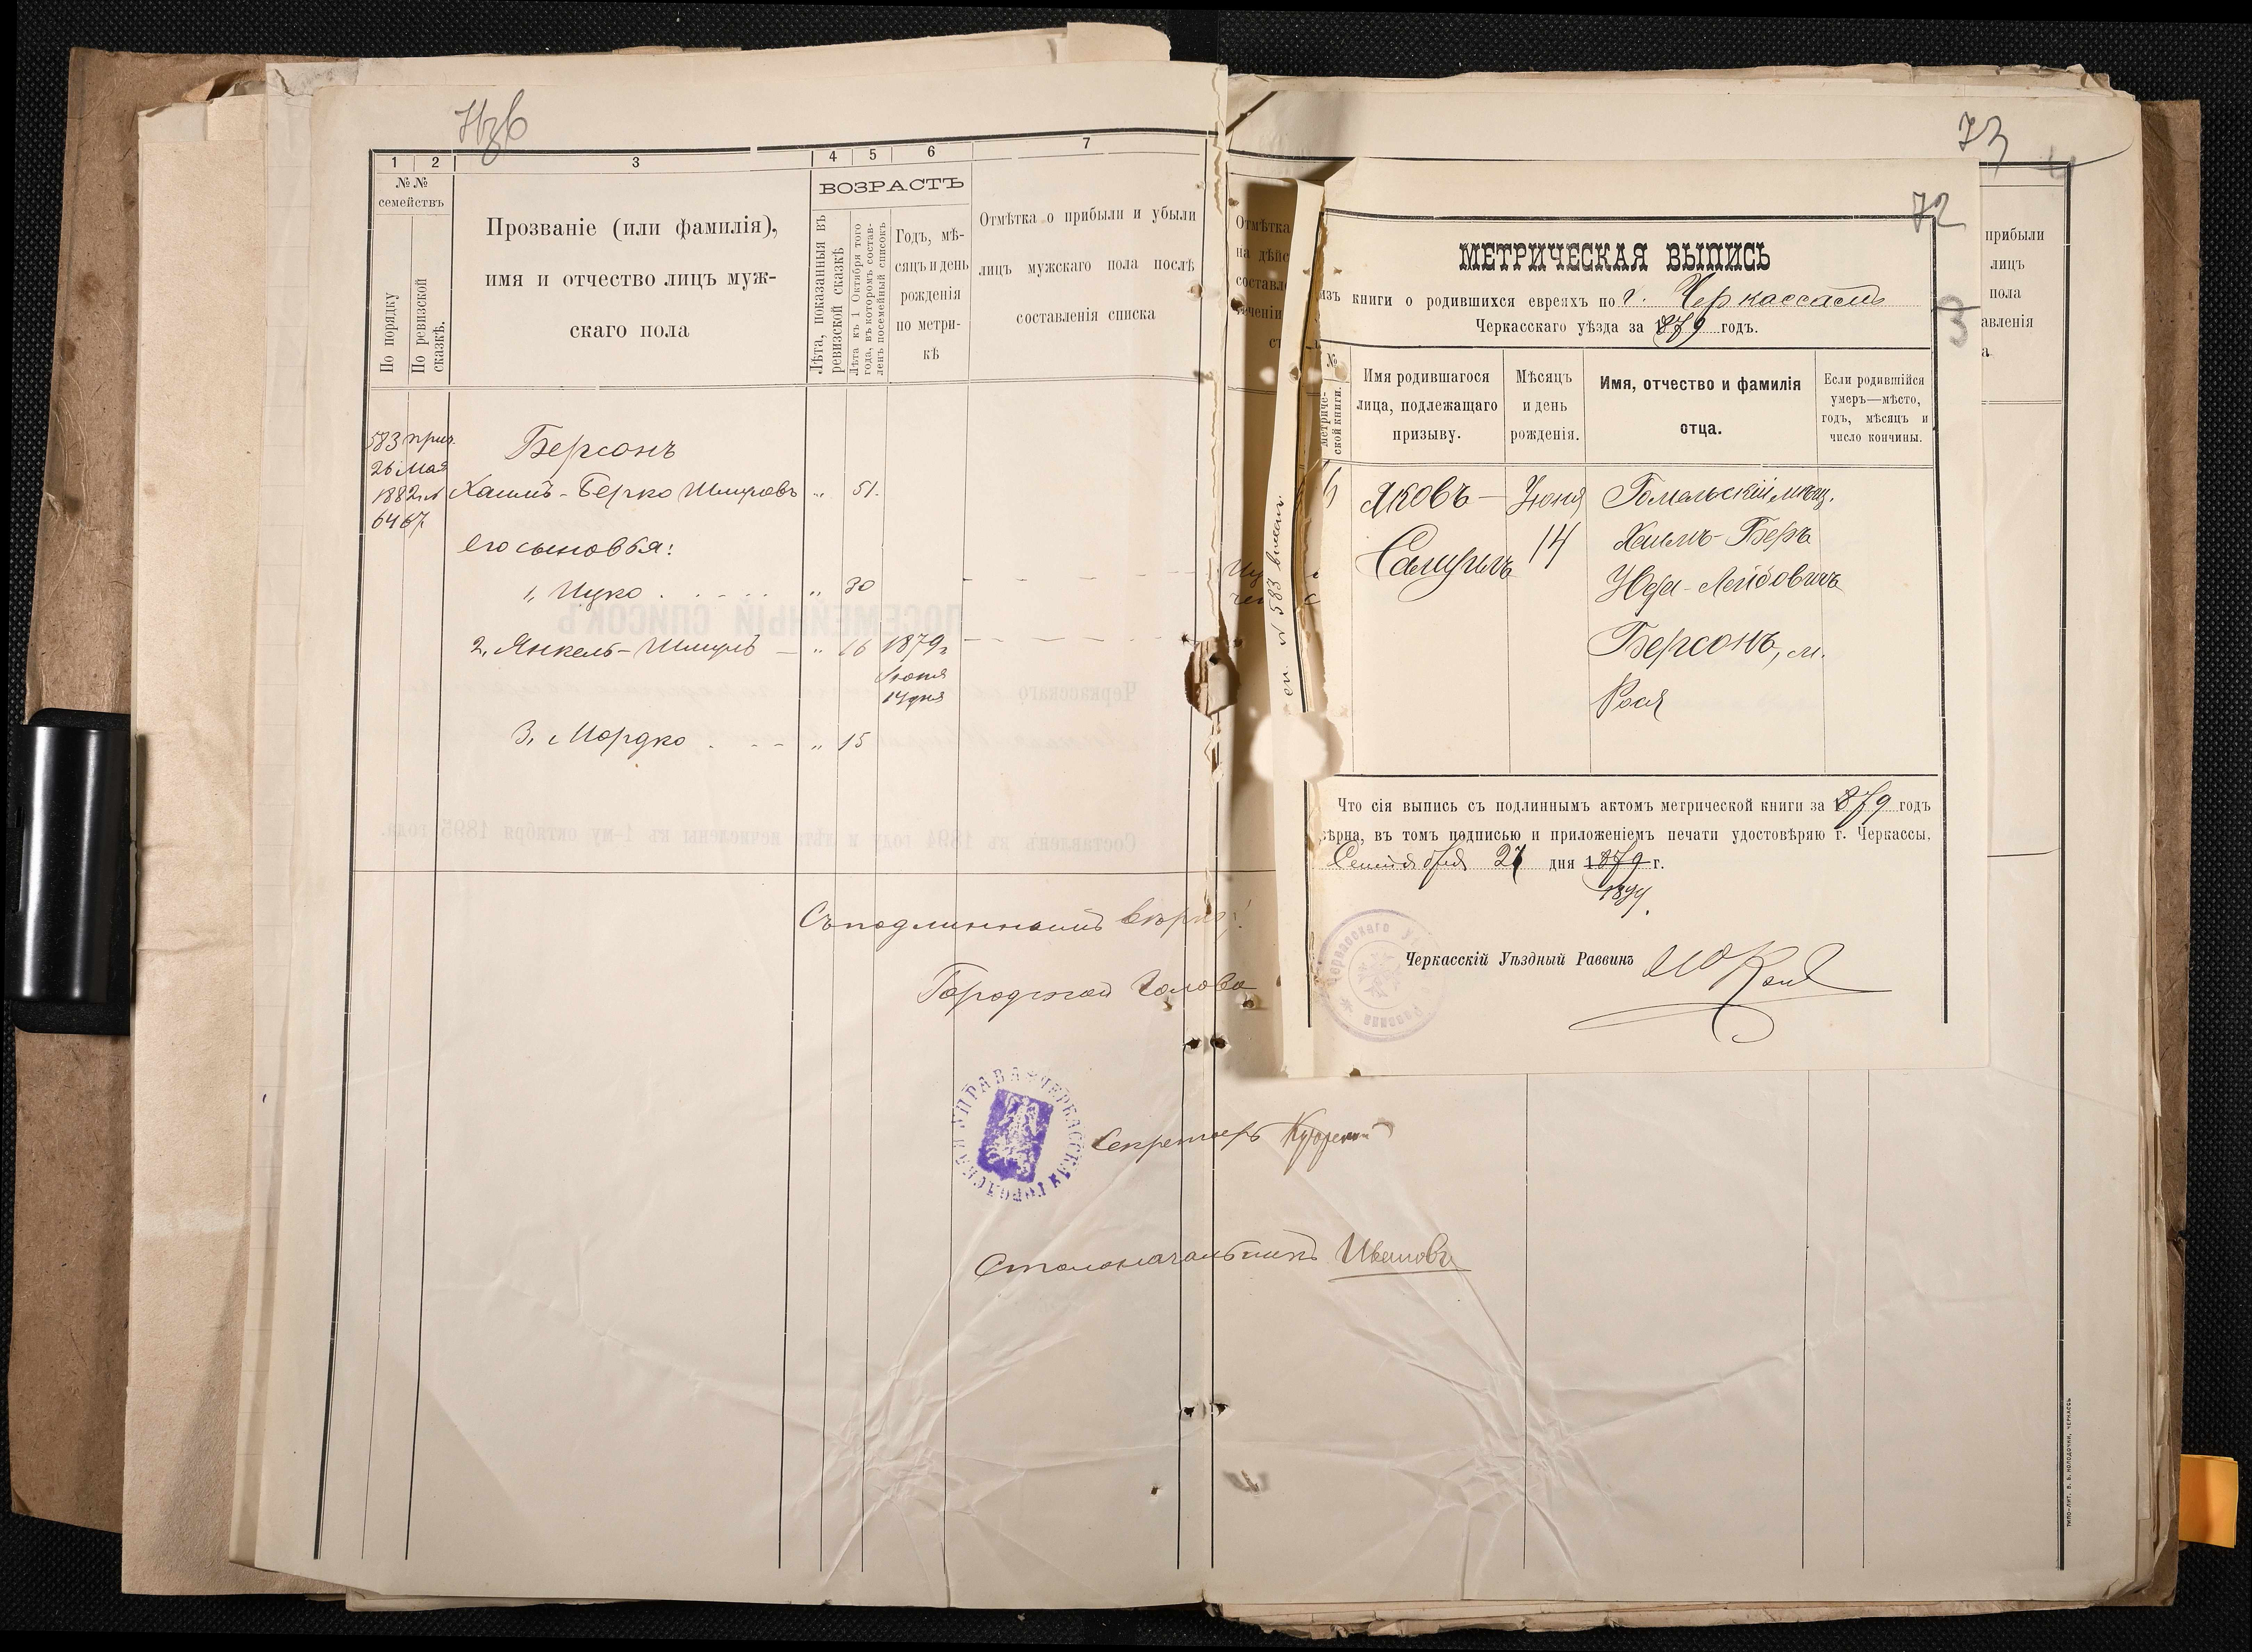 72 об
1 2 3 4 5 6 7
№№
семействъ
По порядку
По ревизской сказкѣ.
Прозваніе (или фамилія),
имя и отчество лицъ муж-
скаго пола
ВОЗРАСТЪ
Лѣта, показанныя въ
ревизской сказкѣ
Лѣта къ 1 Октября того
года, въ которомъ состав-
ленъ посемейный списокъ
Годъ, мѣ-
сяцъ и день
рожденія
по метри-
кѣ
Отмѣтка о прибыли и убыли
лицъ мужскаго пола послѣ
составленія списка
583 прич.
26 мая
1882 г. №
6467
Берсонъ
Хаимъ-Берко „ 51.
Его сыновья:
1, Ицко „ 30
2, Янкель-Шмуль „ 16 1879 г
Іюня
14 дня
3, Мордко „ 15
Съ подлиннымъ вѣрно:
Городской Голова
ЧЕРКАССКАЯ ГОРОДСКАЯ УПРАВА
Секретарь
Столоначальникъ Ивановъ
73
72
3
Отмѣтка
на дѣйс
составл
теченіи
ст
№ 583
МЕТРИЧЕСКАЯ ВЫПИСЬ
изъ книги о родившихся евреяхъ по г. Черкассамъ
Черкасскаго уѣзда за 1879 годъ.
№
метриче-
ской книги.
Имя родившагося
лица, подлежащаго
призыву.
Мѣсяцъ
и день
рожденія.
Имя, отчество и фамилія
отца.
Если родившійся
умеръ—мѣсто,
годъ, мѣсяцъ и
число кончины.
Яковъ- Іюня Гомельскій мѣщ.
Самуилъ 14 Хаимъ-Беръ
Юда-Лейбовичъ
Берсонъ, м.
Рося
Что сія выпись съ подлиннымъ актомъ метрической книги за 1879 годъ
вѣрна, въ томъ подписью и приложеніемъ печати удостовѣряю г. Черкассы,
Сентября 21 дня 1879 г.
1899.
Черкасскій Уѣздный Раввинъ
прибыли
лицъ
пола
авленія
а.
ТИПО-ЛИТ. В. В. КОЛОДОЧКИ, ЧЕРКАССЫ
ПОСЕМЕЙНЫЙ СПИСОКЪ
Черкасскаго
Составленъ въ 1894 году и лѣта исчислены къ 1-му октября 1895 года.